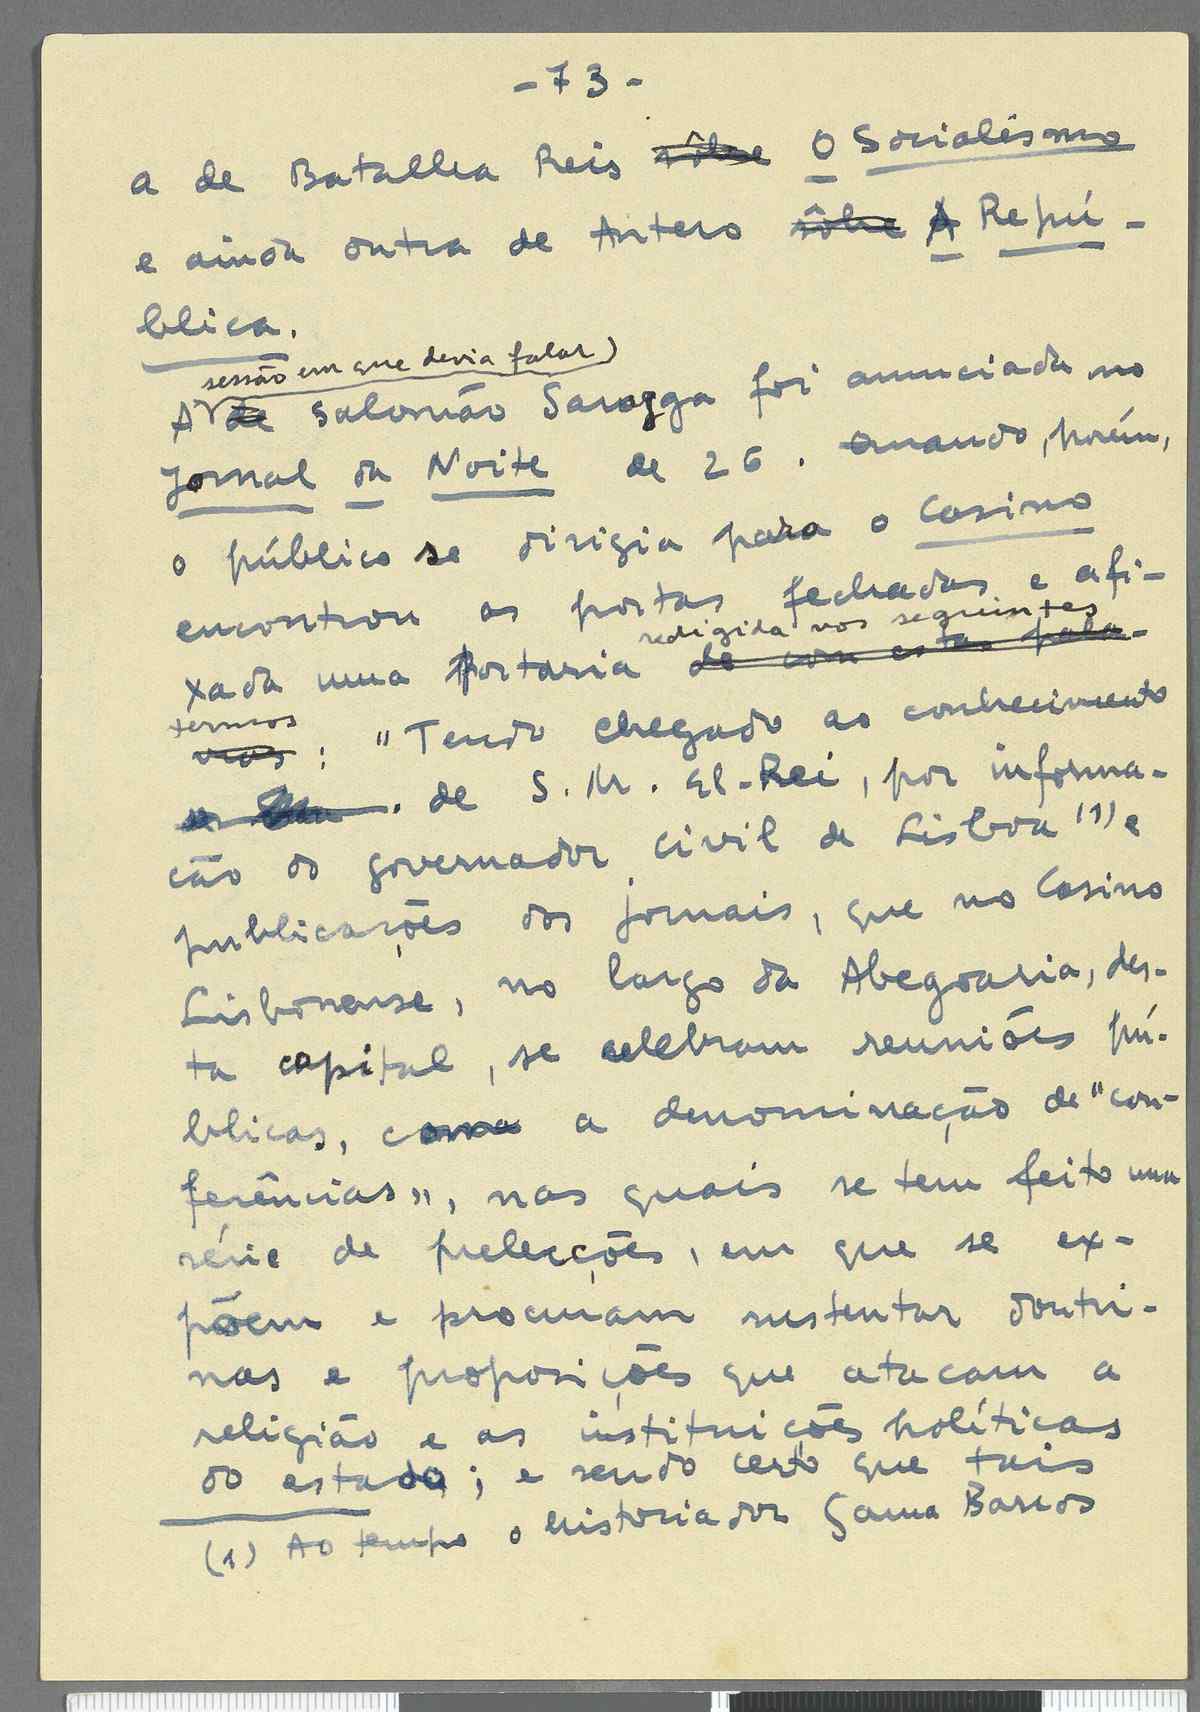 - 73 -
a de Batalha Reis sôbre O Socialismo
e ainda outra de Antero sôbre A Repú-
blica.
sessão em que devia falar)
A de Salomão Saragga foi anunciada no
Jornal da Noite de 26. Quando, porém,
o público se dirigia para o Casino
encontrou as portas fechadas e afi-
redigida nos seguintes
xada uma Portaria de com estas pala-
termos
vras : "Tendo chegado ao conhecimento
de S. M. El-Rei, por informa-
ção do governador civil de Lisboa (1) e
publicações dos jornais, que no Casino
Lisbonense, no largo da Abegoaria, des-
ta capital, se celebram reuniões pú-
blicas, com a denominação de "con-
ferências", nas quais se tem feito uma
série de prelecções, em que se ex-
põem e procuram sustentar doutri-
nas e proposições que atacam a
religião e as instituições políticas
do estado; e sendo certo que tais
(1) Ao tempo o historiador Gama Barros